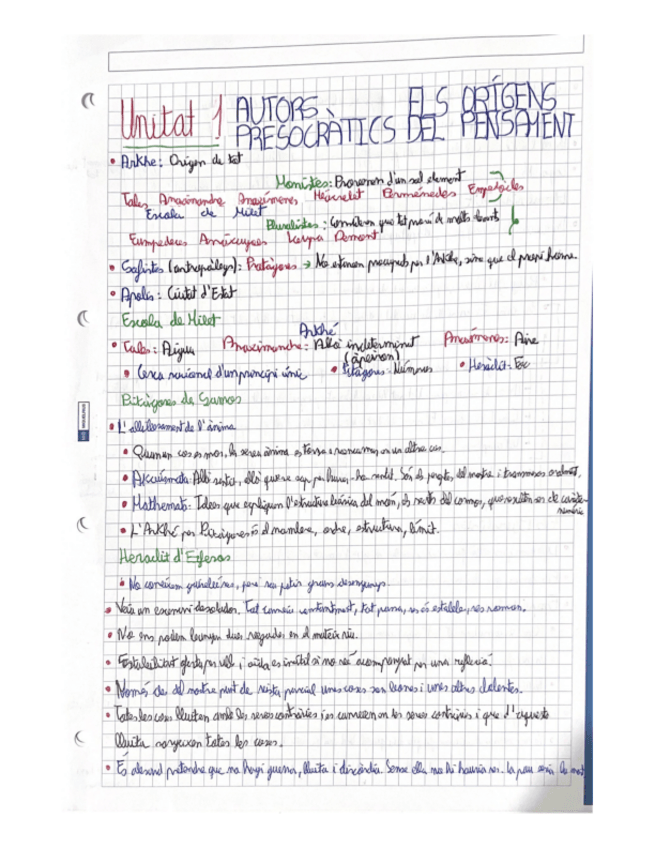 Unitat 1 AUTORS PRESOCRÀTICS ELS ORÍGENS DEL PENSAMENT
• Arkhe: Origen de tot
Monistes: Provenen d'un sol element
Tales Anaximandre Anaxímenes Heràclit Permènedes Empèdocles
Escola de Milet
Pluralistes: Consideren que tot prové de molts
Demont
• Sofistes (antropòlegs): Protàgores → No estaven preocupats per l'Arkhe, sinó que el propi home.
• Apolis: Ciutat d'Estat
Escola de Milet
Arkhé
• Tales: Aigua Anaximandre: Allò indeterminat Anaxímenes: Aire
(àpeiron)
• Cerca racional d'un principi únic • Pitàgores: Números • Heràclit: Foc
Pitàgores de Samos
• L'alliberament de l'ànima
• Quan un cos es mor, la seva ànima es torna a reencarnar en un altre cos.
• Akousmata: Allò sentit, allò que se sap per haver-ho sentit. Són els preceptes del mestre i transmesos oralment.
• Mathemata: Idees que expliquen l'estructura bàsica del món, els secrets del cosmos, que resulten ser de caràcter
numèric
• L'Arkhé per Pitàgores és el nombre, ordre, estructura, límit.
Heraclit d'Efesos
• No coneixem
• Veia un escenari desolador. Tot canvia contínuament, tot passa, res és estable, res roman.
• No ens podem banyar dues vegades en el mateix riu.
• i oïda es inútil si no ve acompanyat per una reflexió.
• Només des del nostre punt de vista parcial unes coses son bones i unes altres dolentes.
• Totes les coses lluiten amb les seves contràries i es converteixen en les seves contràries i que d'aquesta
lluita sorgeixen totes les coses.
• És absurd pretendre que no hagi guerra, lluita i discòrdia. Sense elles no hi hauria res. La pau seria la mort